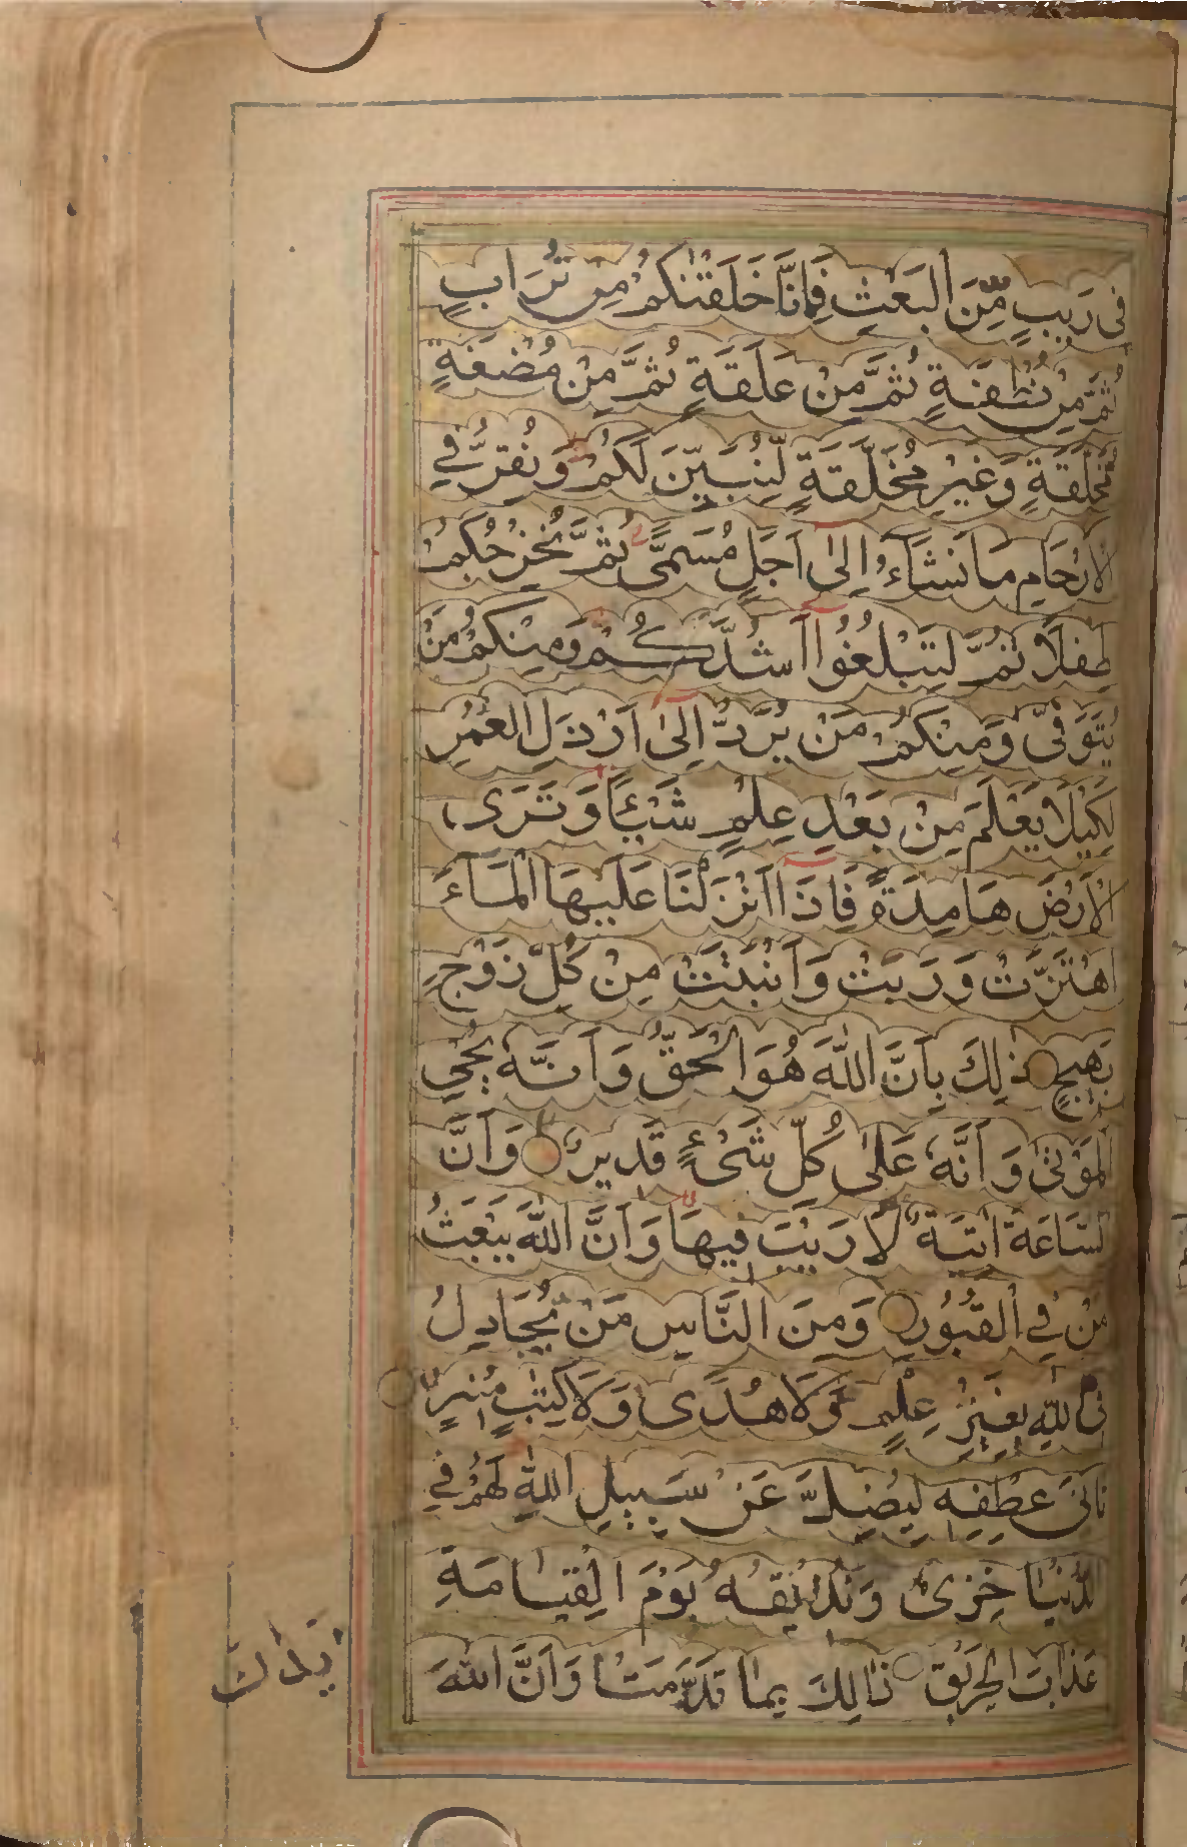 فى رَيبٍ مِّنَ البَعْثِ فَاِنَّا خَلَقْنٰكُمْ مِنْ تُرَابٍ
ثُمَّ مِنْ نُطْفَةٍ ثُمَّ مِنْ عَلَقَةٍ ثُمَّ مِنْ مُضْغَةٍ
مُخَلَّقَةٍ وَغَيْرِ مُخَلَّقَةٍ لِّنُبَيِّنَ لَكُمْ وَنُقِرُّ فِي
الْاَرْحَامِ مَا نَشَآءُ اِلىٰٓ اَجَلٍ مُسَمًّى ثُمَّ نُخْرِجُكُمْ
طِفْلًا ثُمَّ لِتَبْلُغُوْآ اَشُدَّكُمْ وَمِنْكُمْ مَنْ
يُتَوَفّٰى وَمِنْكُمْ مَنْ يُرَدُّ اِلىٰٓ اَرْذَلِ الْعُمُرِ
لِكَيْلَا يَعْلَمَ مِنْ بَعْدِ عِلْمٍ شَيْئًا وَتَرَى
الْاَرْضَ هَامِدَةً فَاِذَآ اَنْزَلْنَا عَلَيْهَا الْمَآءَ
اهْتَزَّتْ وَرَبَتْ وَاَنْبَتَتْ مِنْ كُلِّ زَوْجٍ
بَهِيْجٍ ذٰلِكَ بِاَنَّ اللّٰهَ هُوَ الْحَقُّ وَاَنَّهٗ يُحْيِ
الْمَوْتٰى وَاَنَّهٗ عَلٰى كُلِّ شَىْءٍ قَدِيْرٌ وَاَنَّ
السَّاعَةَ اٰتِيَةٌ لَا رَيْبَ فِيْهَا وَاَنَّ اللّٰهَ يَبْعَثُ
مَنْ فِي الْقُبُوْرِ وَمِنَ النَّاسِ مَنْ يُجَادِلُ
فِى اللّٰهِ بِغَيْرِ عِلْمٍ وَلَا هُدًى وَلَا كِتٰبٍ مُّنِيْرٍ
ثَانِىَ عِطْفِهٖ لِيُضِلَّ عَنْ سَبِيْلِ اللّٰهِ لَهُمْ فِي
الدُّنْيَا خِزْىٌ وَنُذِيْقُهُ يَوْمَ الْقِيَامَةِ
عَذَابَ الْحَرِيْقِ ذَالِكَ بِمَا قَدَّمَتْ وَاَنَّ اللّٰهَ
يَدَاكَ